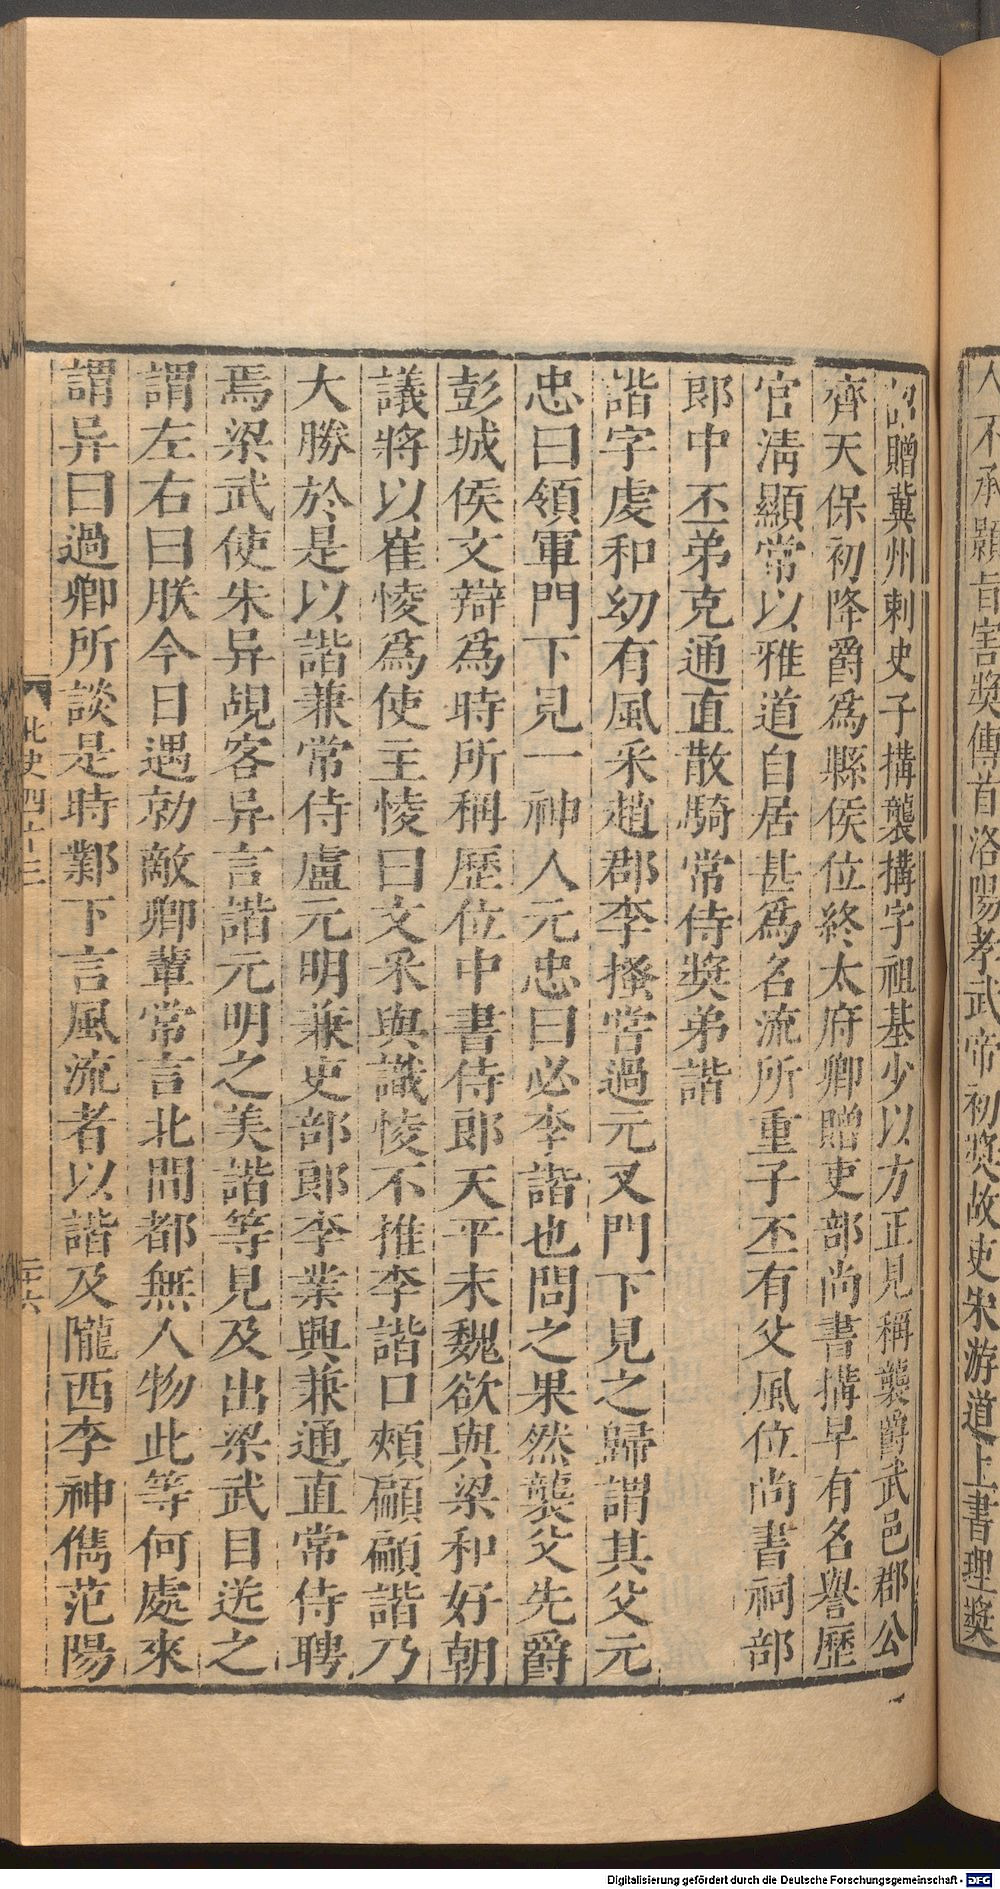 人不承顥旨害奬傳首洛陽孝武帝初奬故吏宋游道上書理奬
詔贈冀州刺史子搆襲搆字祖基少以方正見稱襲爵武邑郡公
齊天保初降爵爲縣侯位終太府卿贈吏部尚書搆早有名譽歷
官淸顯常以雅道自居甚爲名流所重子丕有父風位尚書祠部
郎中丕弟克通直散騎常侍奬弟諧
諧字虔和幼有風采趙郡李搔嘗過元叉門下見之歸謂其父元
忠曰領軍門下見一神人元忠曰必李諧也問之果然襲父先爵
彭城侯文辯爲時所稱歷位中書侍郎天平末魏欲與梁和好朝
議將以崔㥄爲使主㥄曰文采與識㥄不推李諧口頰顧顧諧乃
大勝於是以諧兼常侍盧元明兼吏部郎李業興兼通直常侍聘
焉梁武使朱异覘客异言諧元明之美諧等見及出梁武目送之
謂左右曰朕今日遇勍敵卿輩常言北間都無人物此等何處來
謂异曰過卿所談是時鄴下言風流者以諧及隴西李神儁范陽
北史四十三
二十六
Digitalisierung gefördert durch die Deutsche Forschungsgemeinschaft - DFG